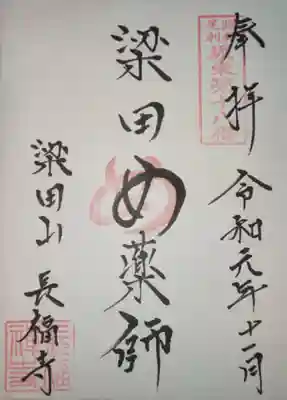 奉拝
令和元年十一月
梁田め薬師
梁田山 長福寺